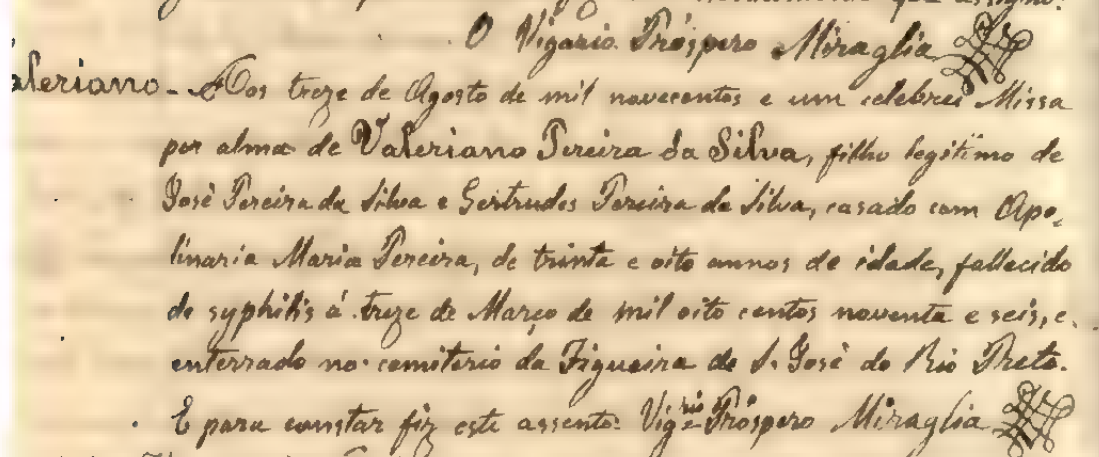 que assigno.
O Vigario Próspero Miraglia
Valeriano - Aos treze de Agosto de mil novecentos e um celebrei Missa
por alma de Valeriano Pereira da Silva, filho legitimo de
José Pereira da Silva e Gertrudes Pereira da Silva, casado com Apo-
linaria Maria Pereira, de trinta e oito annos de idade, fallecido
de syphilis á treze de Março de mil oito centos noventa e seis, e
enterrado no cemiterio da Figueira de S. José do Rio Preto.
E para constar fiz este assento. Vigrio Próspero Miraglia